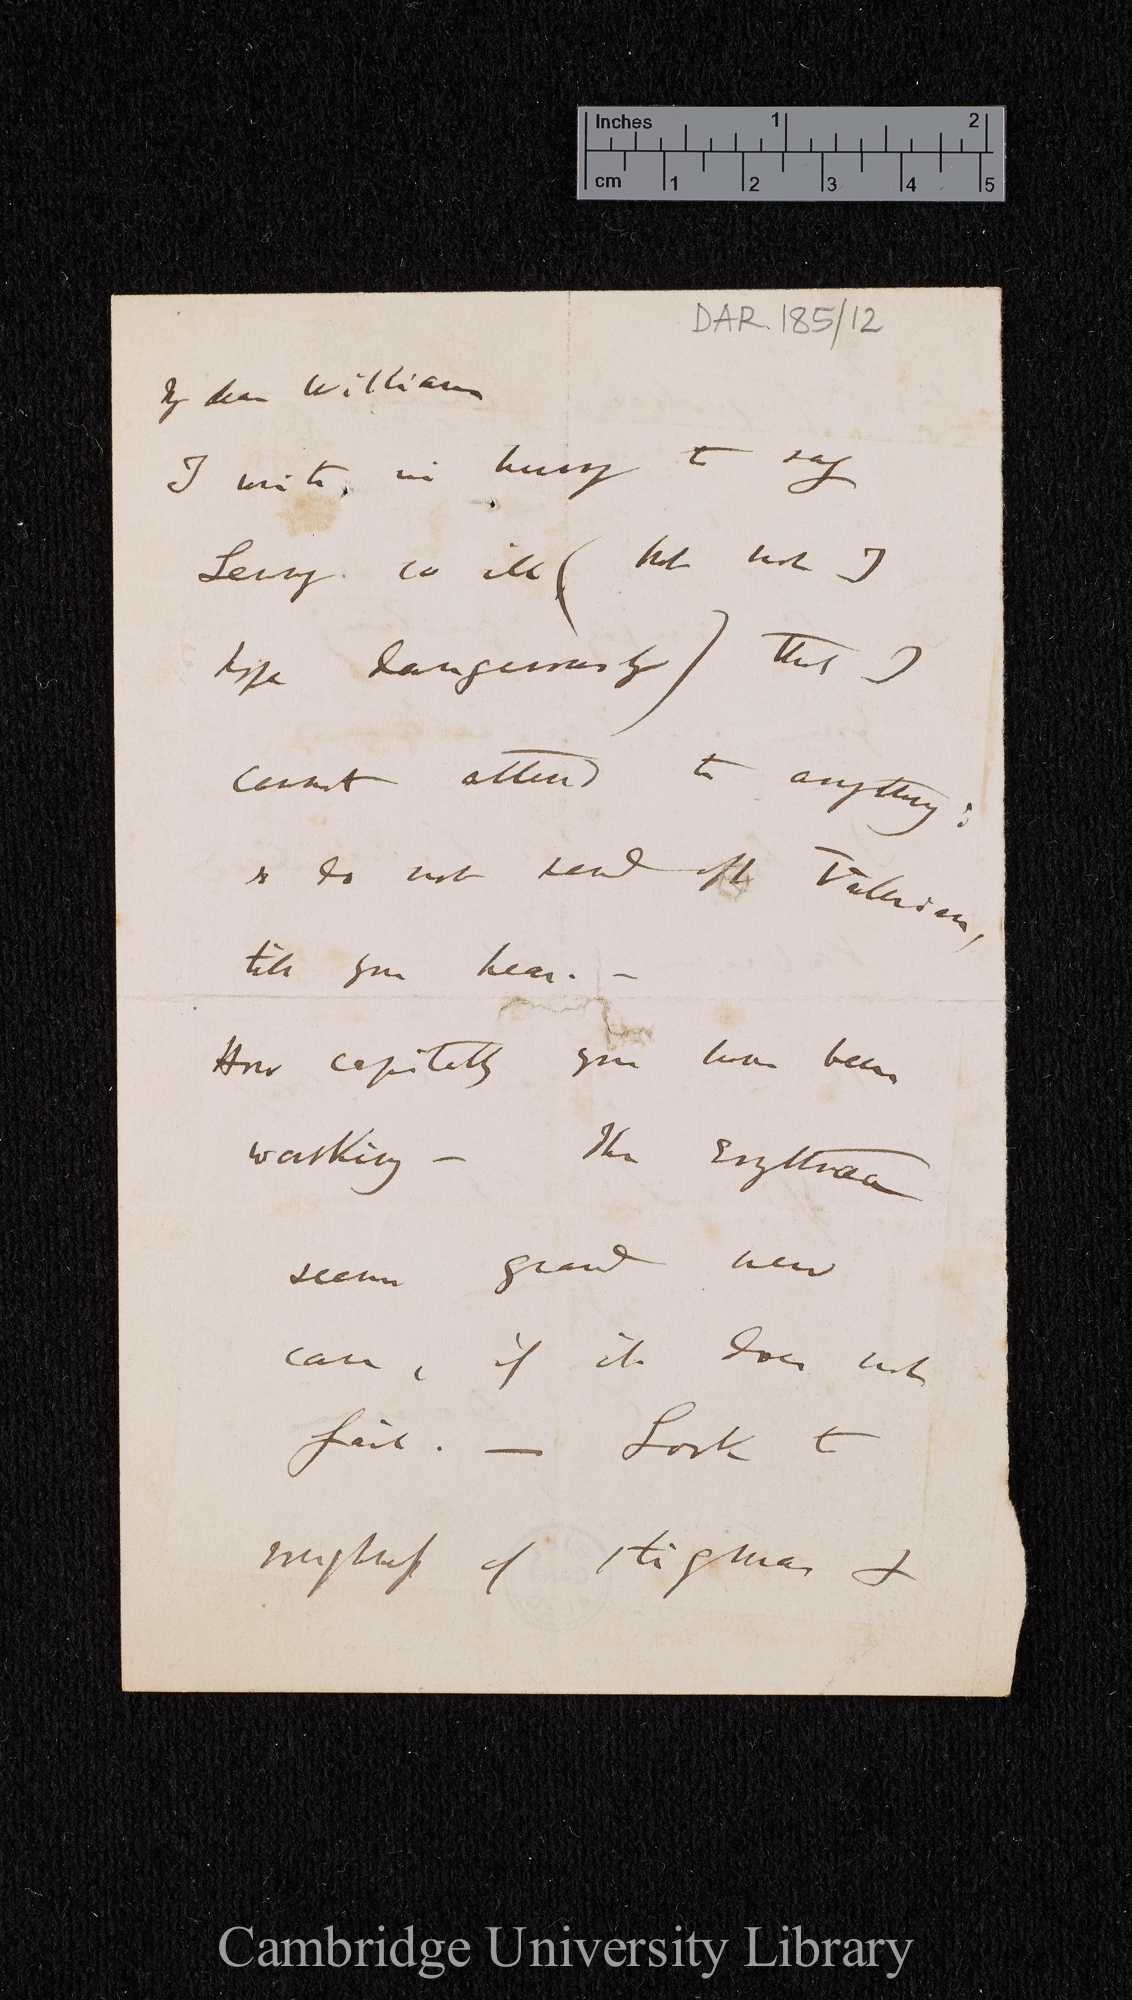 Inches 1 2
cm 1 2 3 4 5
DAR. 185/12
My dear William
I write in hurry to say
Lenny so ill (but not I
hope dangerously) that I
cannot attend to anything:
so do not send off Valerian,
till you hear. —
How capitally you have been
working — The Erythraea
seems grand new
case, if it does not
fail. — Look to
roughness of stigmas &
Cambridge University Library